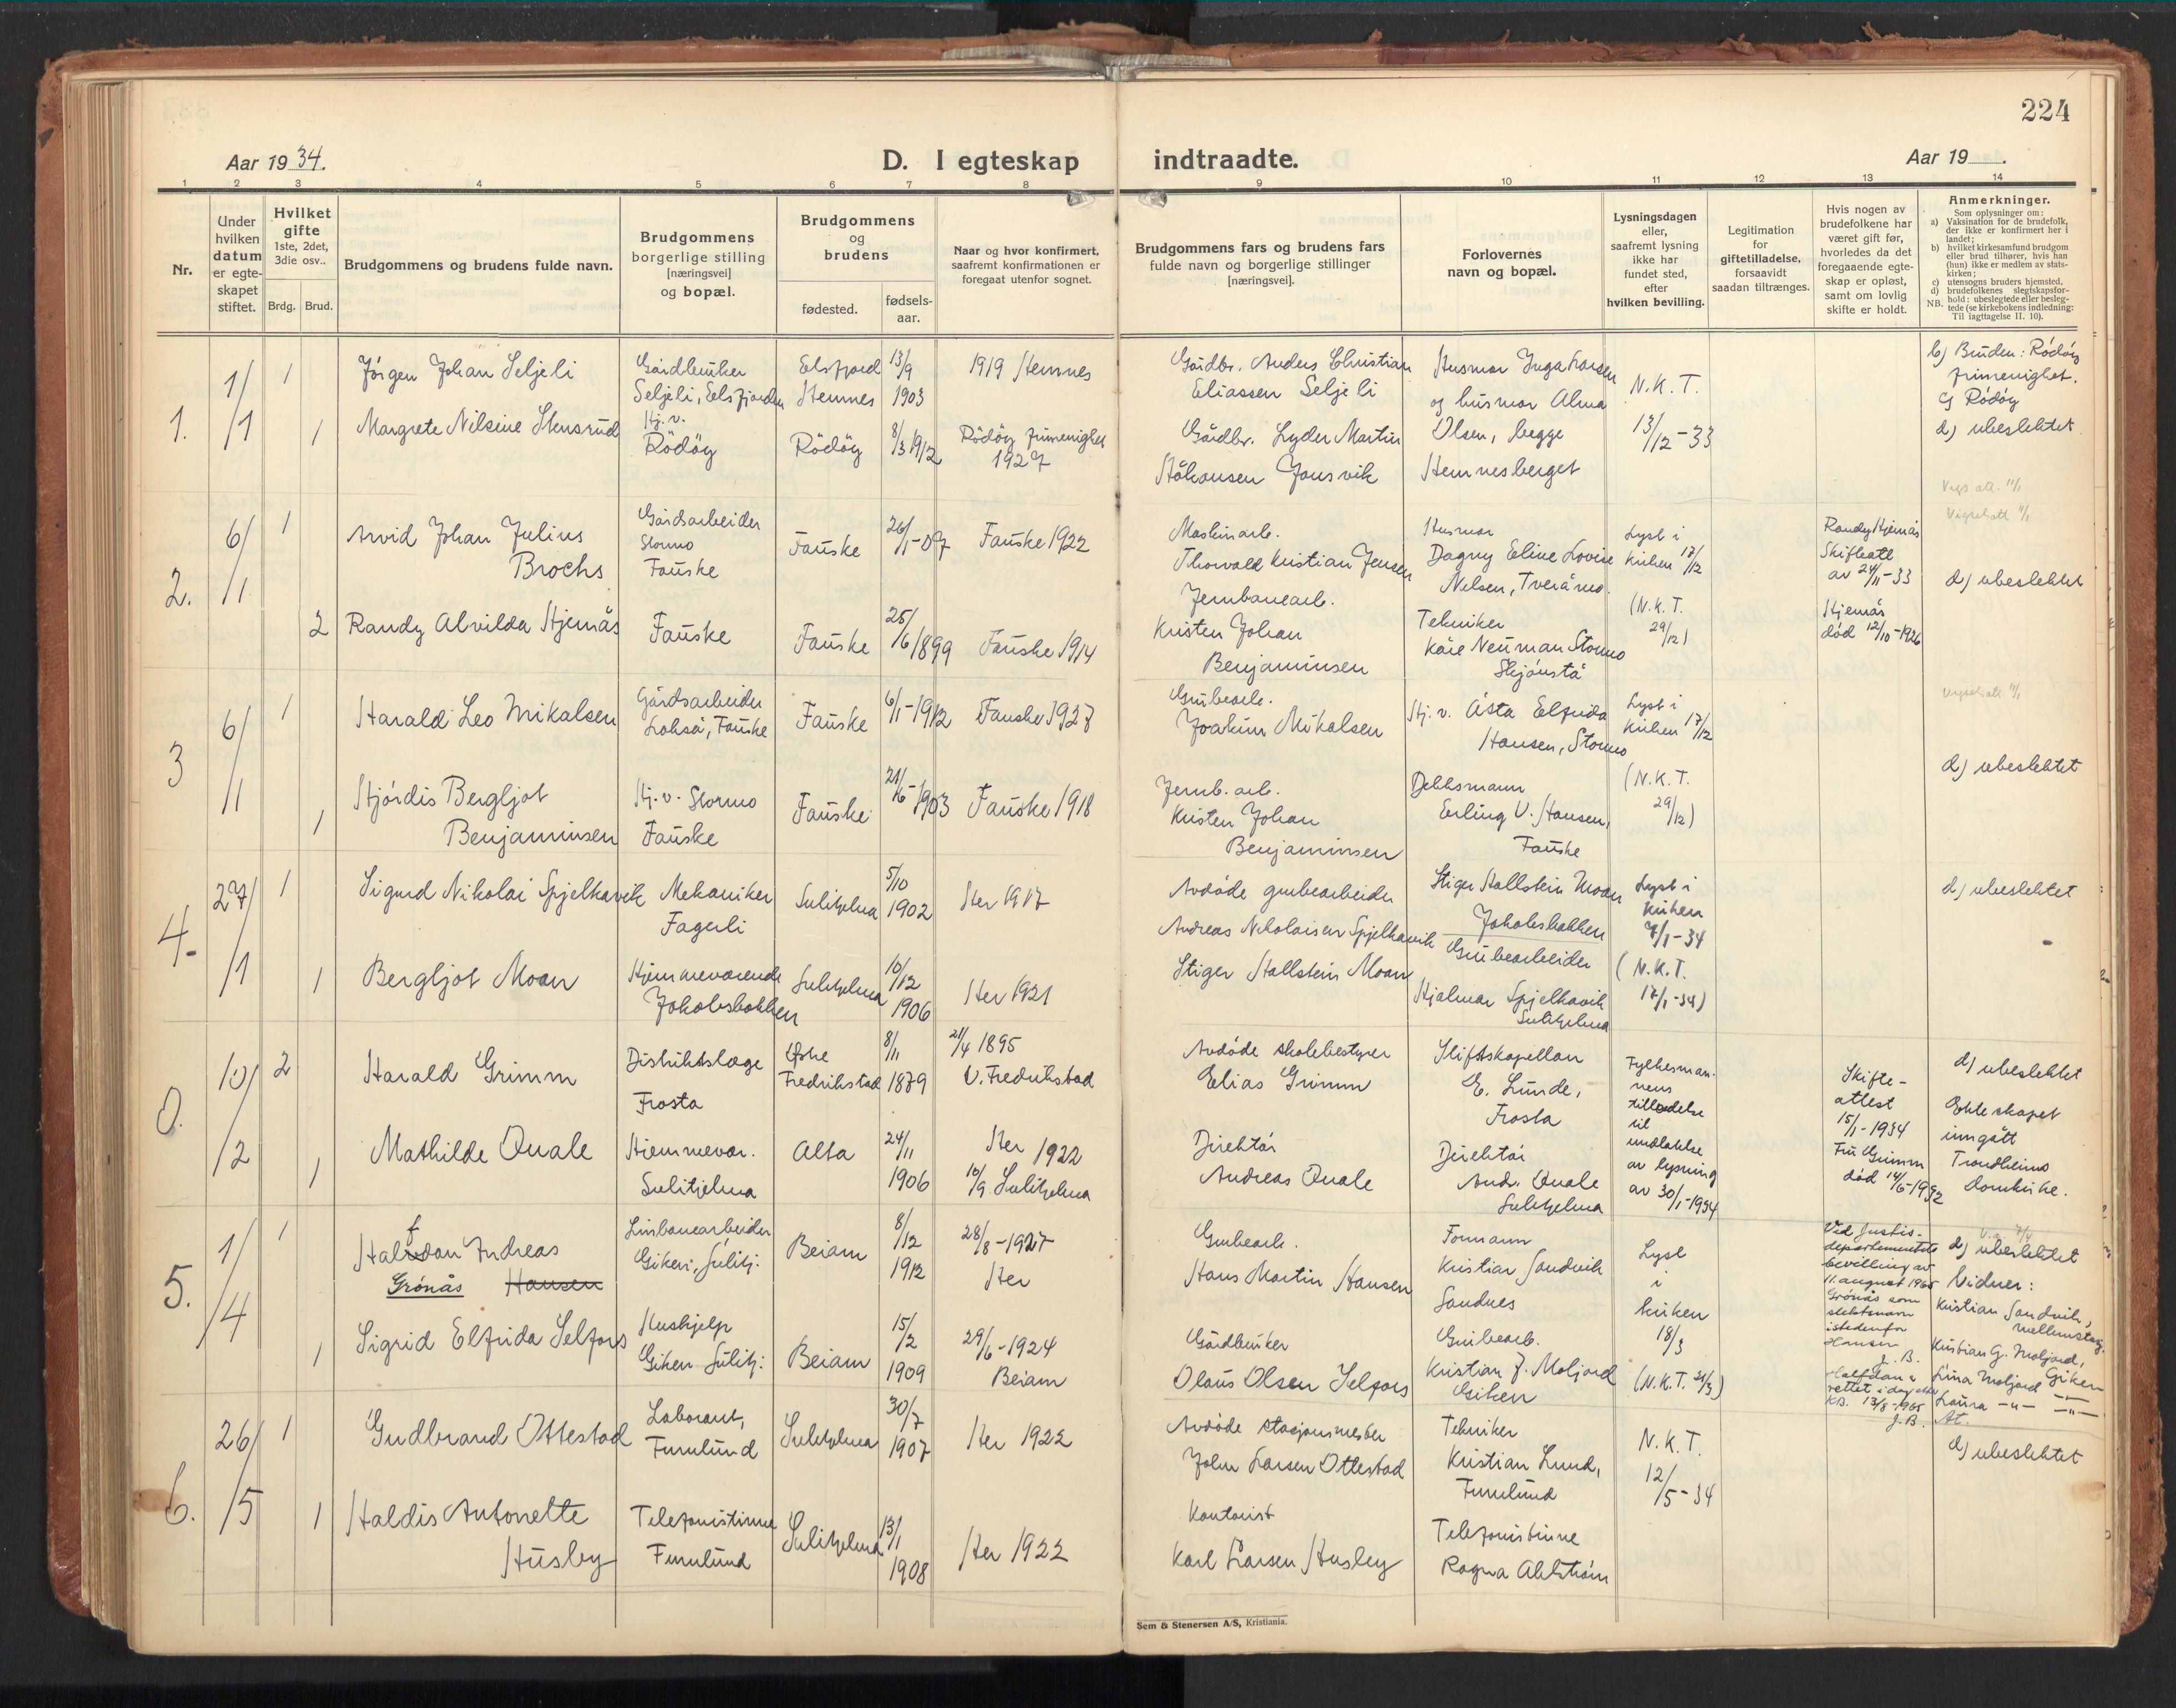 224
Aar 1934.
D. I egteskap indtraadte.
Aar 19 .
1 2 3 4 5 6 7 8 9 10 11 12 13 14
Nr.
Under
hvilken
datum
er egte-
skapet
stiftet.
Hvilket
gifte
1ste, 2det,
3die osv..
Brdg. Brud.
Brudgommens og brudens fulde navn.
Brudgommens
borgerlige stilling
[næringsvei]
og bopæl.
Brudgommens
og
brudens
fødested.
fødsels-
aar.
Naar og hvor konfirmert,
saafremt konfirmationen er
foregaat utenfor sognet.
Brudgommens fars og brudens fars
fulde navn og borgerlige stillinger
[næringsvei].
Forlovernes
navn og bopæl.
Lysningsdagen
eller,
saafremt lysning
ikke har
fundet sted,
efter
hvilken bevilling.
Legitimation
for
giftetilladelse,
forsaavidt
saadan tiltrænges.
Hvis nogen av
brudefolkene har
været gift før,
hvorledes da det
foregaaende egte-
skap er opløst,
samt om lovlig
skifte er holdt.
Anmerkninger.
Som oplysninger om:
a) Vaksination for de brudefolk,
der ikke er konfirmert her i
landet;
b) hvilket kirkesamfund brudgom
eller brud tilhører, hvis han
(hun) ikke er medlem av stats-
kirken;
c) utensogns bruders hjemsted,
d) brudefolkenes slegtskapsfor-
hold: ubeslegtede eller besleg-
NB. tede (se kirkebokens indledning:
Til iagttagelse II. 10).
1.
1/1
1
Jörgen Johan Seljeli
Gårdbruker
Seljeli, Elsfjorden
Elsfjord
Hemnes
13/9
1903
1919 Hemnes
Gårdbr. Anders Christian
Eliassen Seljeli
Husmor Inga Larsen
og husmor Alma
Olsen, begge
Hemnesberget
N.K.T.
13/12-33
b) Bruden: Rödöy
frimenighet.
c) Rödöy
d) ubeslektet
1
Margrete Nilsine Stensrud
Hj.v.
Rödöy
Rödöy
8/3 1912
Rödöy frimenighet
1927
Gårdbr. Lyder Martin
Håkonsen Jonsvik
2.
6/1
1
Arvid Johan Julius
Brochs
Gårdsarbeider
Stormo
Fauske
Fauske
26/1-07
Fauske 1922
Maskinarb.
Thorvald Kristian Jensen
Husmor
Dagny Eline Lovise
Nilsen, Tveråmo.
Lyst i
kirken 17/12
(N.K.T.
29/12)
Randy Hjemås
Skifteatt
av 24/11-33
Hjemås
död 12/10-1926
d) ubeslektet
2
Randy Alvilda Hjemås
Fauske
Fauske
25/6 1899
Fauske 1914
Jernbanearb.
Kristen Johan
Benjaminsen
Tekniker
Kåre Neuman Stormo
Skjönstå
3
6/1
1
Harald Leo Mikalsen
Gårdsarbeider
Lakså, Fauske
Fauske
6/1-1912
Fauske 1927
Grubearb.
Joakim Mikalsen
Hj.v. Åsta Elfrida
Hansen, Stormo
Lyst i
kirken 17/12
(N.K.T.
29/12)
d) ubeslektet
1
Hjördis Bergljot
Benjaminsen
Hj.v. Stormo
Fauske
Fauske
21/6-1903
Fauske 1918
Jernb. arb.
Kristen Johan
Benjaminsen
Dekksmann
Erling V. Hansen,
Fauske
4.
27/1
1
Sigurd Nikolai Spjelkavik
Mekaniker
Fagerli
Sulitjelma
5/10
1902
Her 1917
Avdöde grubearbeider
Andreas Nikolaisen Spjelkavik
Stiger Hallstein Moan
Jakobsbakken
Grubearbeider
Hjalmar Spjelkavik
Sulitjelma
Lyst i
kirken
7/1-34
(N.K.T.
17/1-34)
d) ubeslektet
1
Bergljot Moan
Hjemmeværende
Jakobsbakken
Sulitjelma
10/12
1906
Her 1921
Stiger Hallstein Moan
0.
10/2
2
Harald Grimm
Distriktslæge
Frosta
Fredrikstad
8/11
1879
21/4 1895
V. Fredrikstad
Avdöde skolebestyrer
Elias Grimm
Stiftskapellan
E. Lunde,
Frosta
Fylkesman-
nens
tilladelse
til
undlatelse
av lysning
av 30/1-1934
Skifte-
attest
15/1-1934
Fru Grimm
död
d) ubeslektet
Ekteskapet
inngått
Trondheims
domkirke.
1
Mathilde Quale
Hjemmevær.
Sulitjelma
Alta
24/11
1906
Her 1922
10/9 Sulitjelma
Direktör
Andreas Quale
Direktör
And. Quale
Sulitjelma
5.
1/4
1
Halfdan Andreas
Grönås Hansen
Linbanearbeider
Giken, Sulitj.
Beiarn
8/12
1912
28/8-1927
Her
Grubearb.
Hans Martin Hansen
Formann
Kristian Sandvik
Sandnes
Lyst
i
kirken
18/3
(N.K.T. 21/3)
Ved Justis-
departementets
bevilling av
11. august 1965
Grönås som
slektsnavn
istedenfor
Hansen
J.B.
Halfdan
rettet i dag
KB. 13/8-1965
J.B.
d) ubeslektet
Vidner:
Kristian Sandvik,
Kristian G. Moljord,
Giken
Lina Moljord -"-
Laura -"- -"-
1
Sigrid Elfrida Selfors
Hushjelp
Giken Sulitj:
Beiarn
15/2
1909
29/6-1924
Beiarn
Gårdbruker
Olaus Olsen Selfors
Grubearb.
Kristian J. Moljord
Giken
6.
26/5
1
Gudbrand Ottestad
Laborant,
Furulund
Sulitjelma
30/7
1907
Her 1922
Avdöde stasjonsmester
John Larsen Ottestad
Tekniker
Kristian Lund,
Furulund
N.K.T.
12/5-34
d) ubeslektet
1
Haldis Antonette
Husby
Telefonistinne
Furulund
Sulitjelma
13/1
1908
Her 1922
Kontorist
Karl Larsen Husby
Telefonistinne
Ragna Ahlström
Sem & Stenersen A/S, Kristiania.